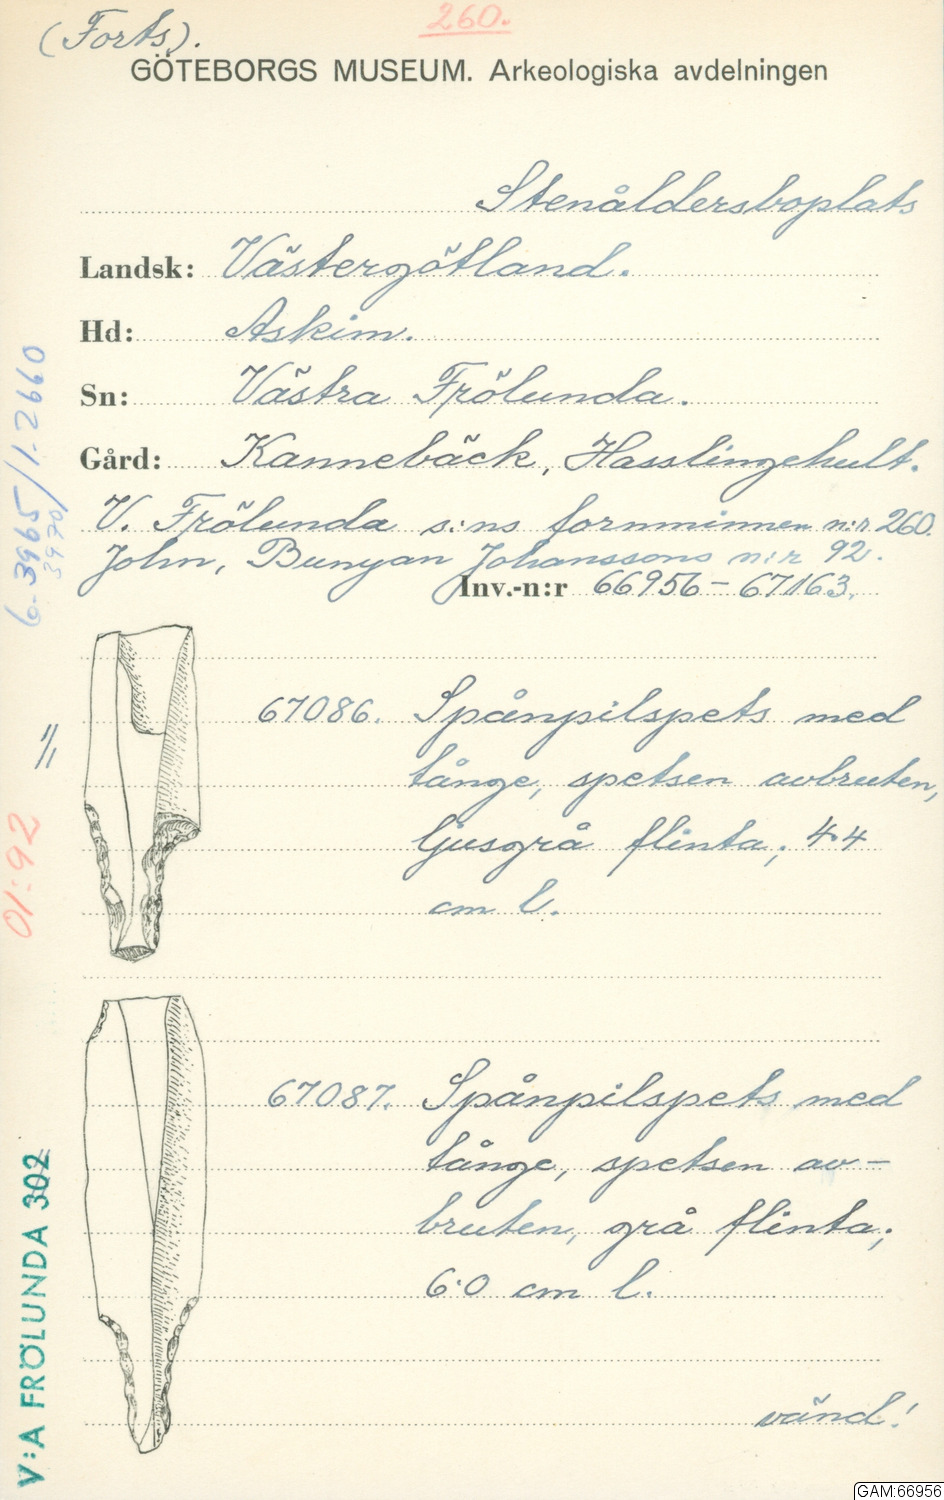 (Forts).
260.
GÖTEBORGS MUSEUM. Arkeologiska avdelningen
Stenåldersboplats
Landsk: Västergötland.
Hd: Askim.
Sn: Västra Frölunda.
Gård: Kannebäck, Hasslingehult.
V. Frölunda s:ns fornminnen n:r 260.
John, Bunyan Johanssons n:r 92.
Inv.-n:r 66956-67163.
67086. Spånpilspets med
tånge, spetsen avbruten,
ljusgrå flinta; 4.4
cm l.
67087. Spånpilspets med
tånge, spetsen av-
bruten, grå flinta;
6.0 cm l.
vänd!
3965/1-2660
3970/
01:92
V:A FRÖLUNDA 302
GAM:66956